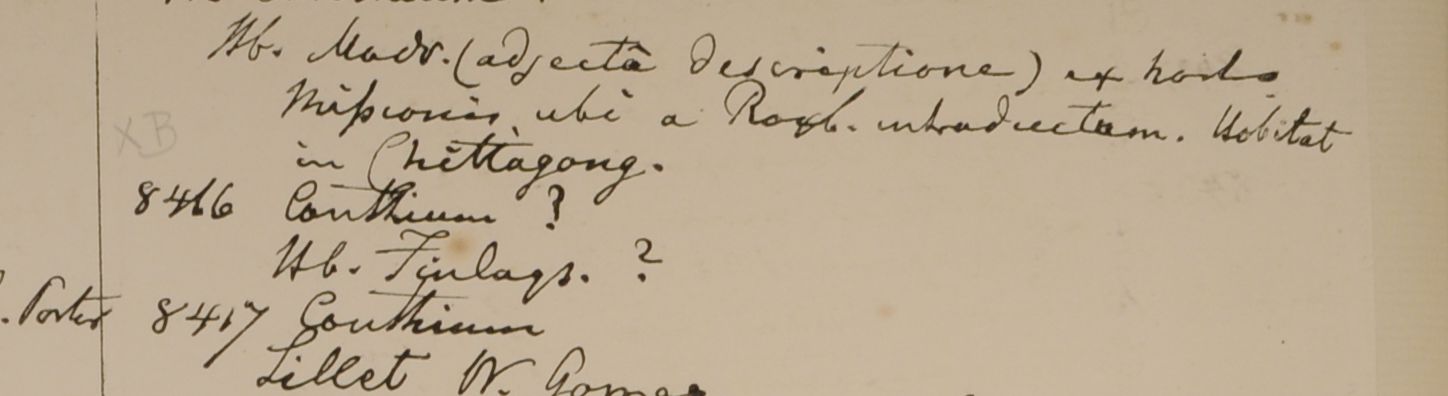 Hb. Madr. (adjectâ descriptione) ex horto
Missionis ubi a Roxb. introductam. Habitat
XB
in Chittagong.
8466 Canthium ?
Hb. Finlays. ?
Porter 8467 Canthium
Sillet W. Gomez